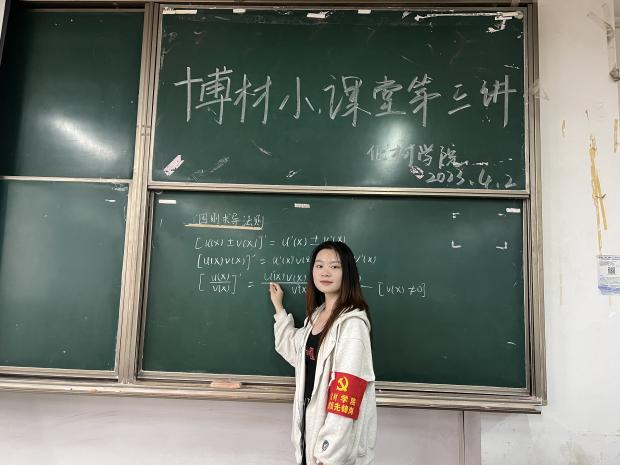 博材小课堂第三讲
化材学院
2023.4.2
四则求导法则
[u(x) ± v(x)]' = u'(x) ± v'(x)
[u(x)v(x)]' = u'(x)v(x) v'(x)
[u(x)/v(x)]' = u(x)v(x) / v(x) [v(x) ≠ 0]
材学院
先锋岗